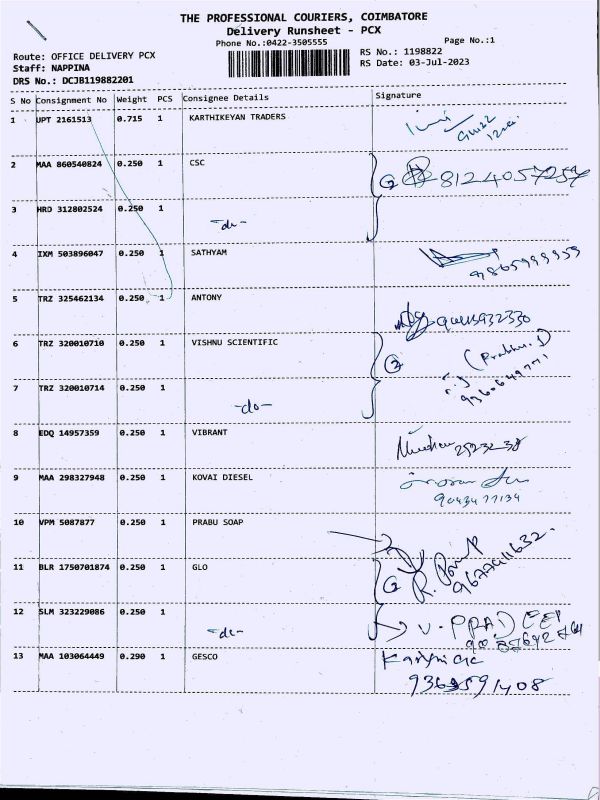 THE PROFESSIONAL COURIERS, COIMBATORE
Delivery Runsheet - PCX
Phone No.:0422-3505555
Page No.:1
Route: OFFICE DELIVERY PCX
RS No.: 1198822
Staff: NAPPINA
RS Date: 03-Jul-2023
DRS No.: DCJB119882201
S No Consignment No Weight PCS Consignee Details Signature
1 UPT 2161513 0.715 1 KARTHIKEYAN TRADERS
2 MAA 860540824 0.250 1 CSC
2 8124057257
3 HRD 312802524 0.250 1
-do-
4 IXM 503896047 0.250 1 SATHYAM
5 TRZ 325462134 0.250 1 ANTONY
6 TRZ 320010710 0.250 1 VISHNU SCIENTIFIC
2
7 TRZ 320010714 0.250 1
-do-
8 EDQ 14957359 0.250 1 VIBRANT
9 MAA 298327948 0.250 1 KOVAI DIESEL
9043477134
10 VPM 5087877 0.250 1 PRABU SOAP
11 BLR 1750701874 0.250 1 GLO
2
12 SLM 323229086 0.250 1
-do-
V. PRADEEP
13 MAA 103064449 0.290 1 GESCO